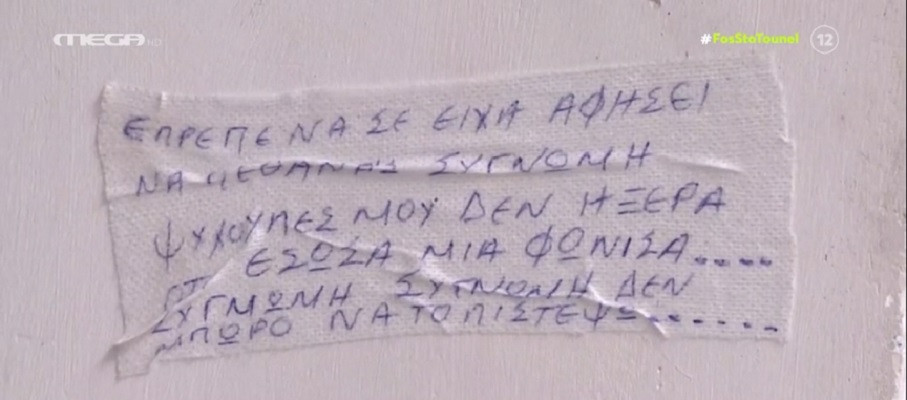 MEGA HD
#FosStoTounel
12
ΕΠΡΕΠΕ ΝΑ ΣΕ ΕΙΧΑ ΑΦΗΣΕΙ
ΝΑ ΠΕΘΑΝΑΣ ΣΥΓΝΩΜΗ
ΨΥΧΟΥΠΕΣ ΜΟΥ ΔΕΝ ΗΞΕΡΑ
ΟΤΙ ΕΣΩΣΑ ΜΙΑ ΦΩΝΙΣΑ.....
ΣΥΓΜΩΜΗ ΣΥΓΝΩΜΗ ΔΕΝ
ΜΠΩΡΟ ΝΑ ΤΟ ΠΙΣΤΕΨΩ.......